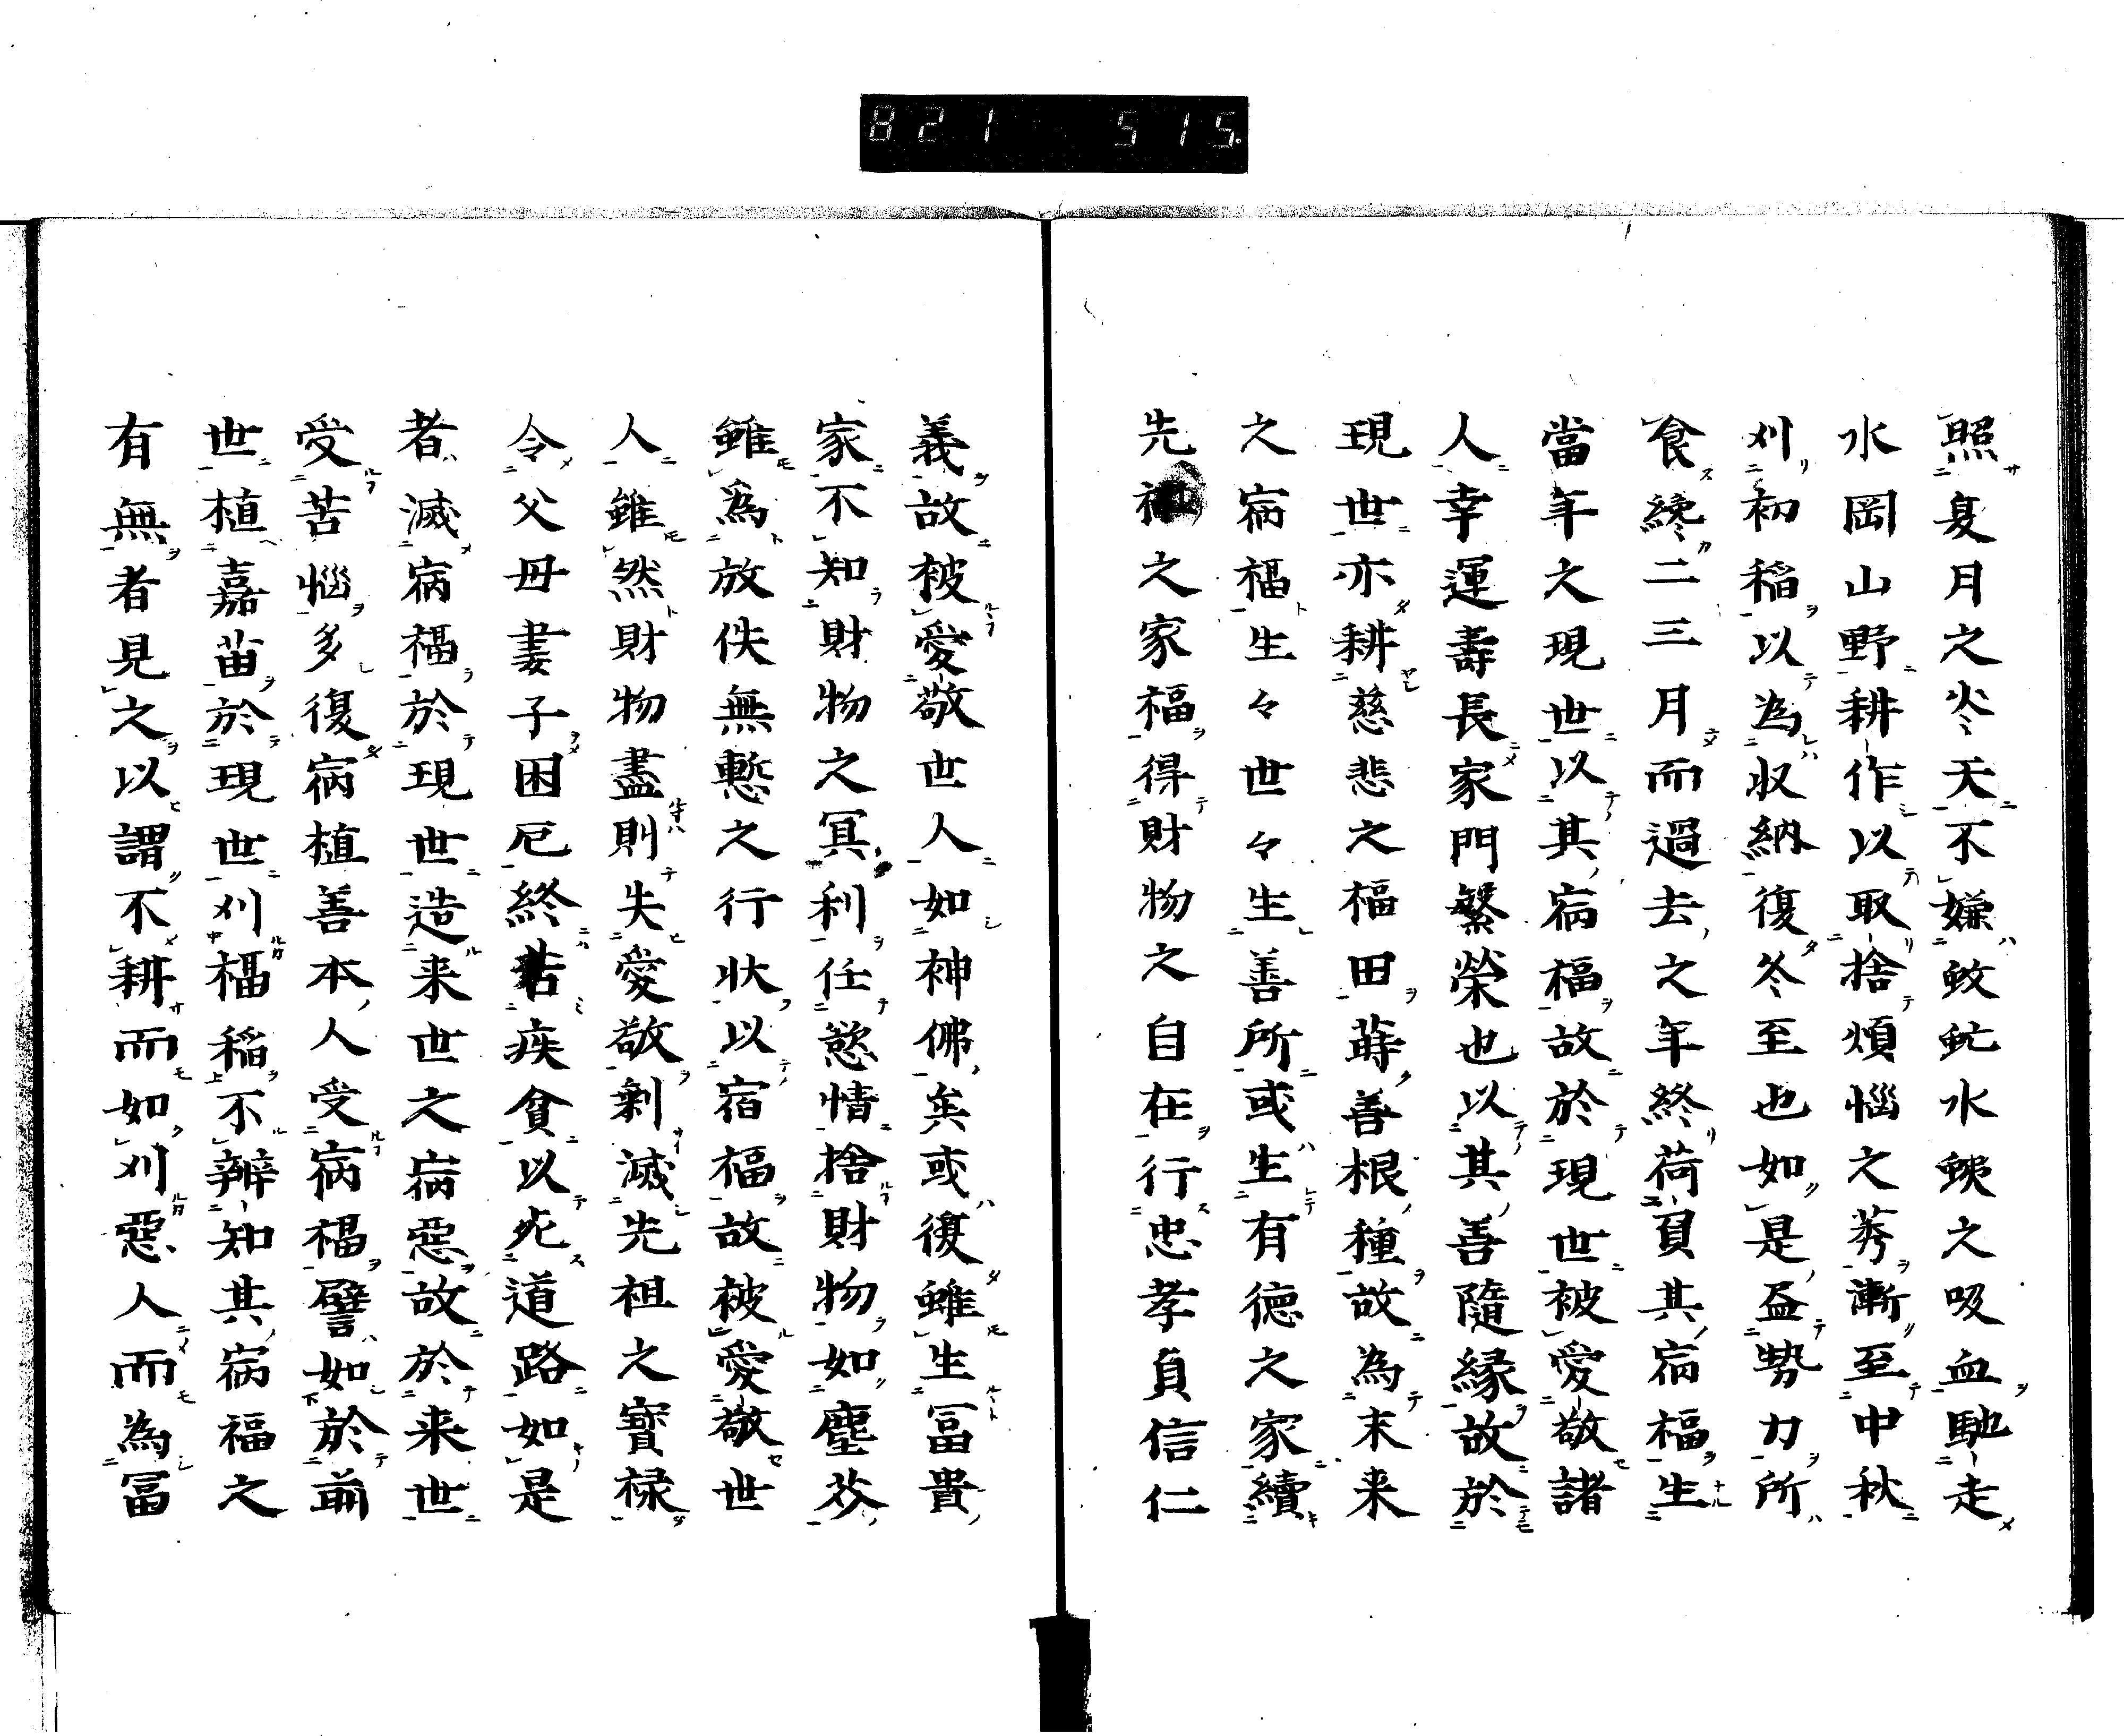 821 515.
照夏月之炎天不嫌蚊虻水蛭之吸血馳走
水岡山野耕作以取捨煩惱之莠漸至中秋
刈初稲以為収納復冬至也如是盈勢力所
食纔二三月而過去之年終荷負其病福生
當年之現世以其病福故於現世被愛敬諸
人幸運壽長家門繁榮也以其善隨縁故於
現世亦耕慈悲之福田蒔善根種故為末来
之病福生々世々生善所或生有德之家續
先神之家福得財物之自在行忠孝貞信仁
義故被愛敬世人如神佛矣或復雖生冨貴
家不知財物之冥利任慾情捨財物如塵芥
雖為放佚無慙之行状以宿福故被愛敬世
人雖然財物盡則失愛敬剝滅先祖之寳祿
令父母妻子困厄終苦疾貧以死道路如是
者滅病福於現世造来世之病惡故於来世
受苦惱多復病植善本人受病福譬如於前
世植嘉苗於現世刈福稲不辨知其病福之
有無者見之以謂不耕而如刈惡人而為冨